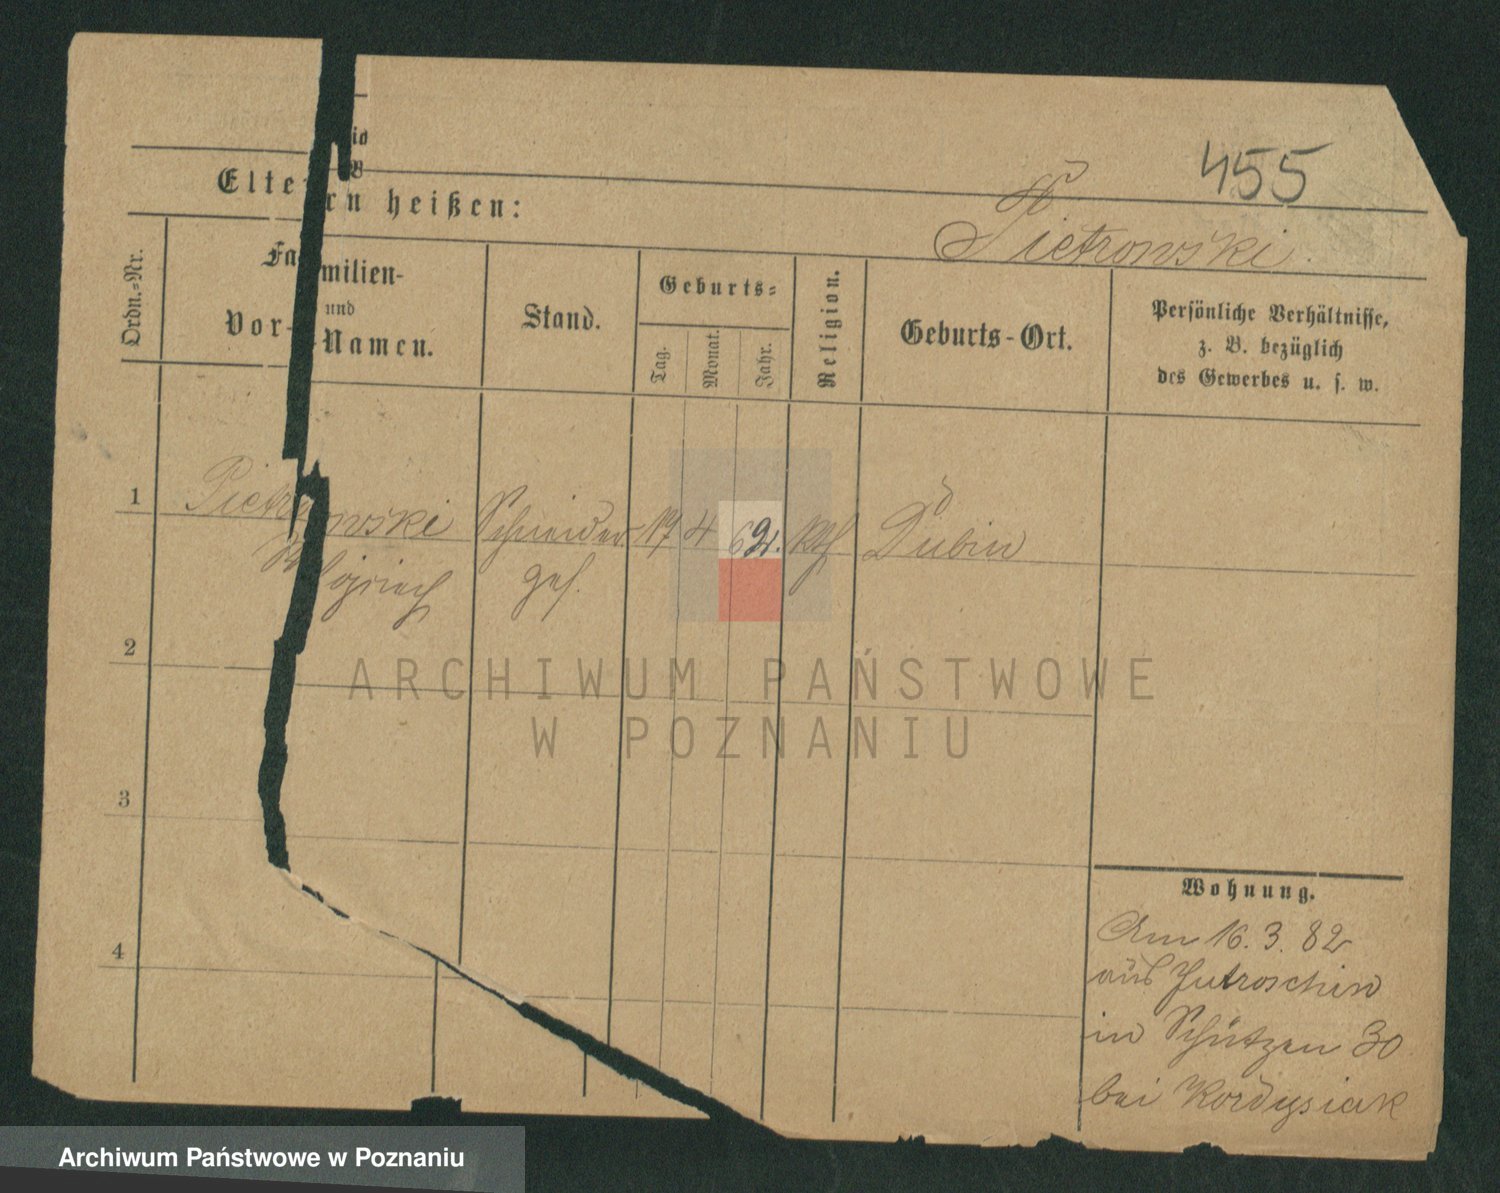 455
Eltern heißen:
Pietrowski.
Ordn.-Nr.
Familien-
und
Vor-Namen.
Stand.
Geburts-
Tag.
Monat.
Jahr.
Religion.
Geburts-Ort.
Persönliche Verhältnisse,
z. B. bezüglich
des Gewerbes u. s. w.
1
Pietrowski Schneider 17 4 62. kth Dubin
Wojciech ges.
2
3
4
Wohnung.
Am 16. 3. 82
aus Jutroschin
in Schützen 30
bei Kordysiak
ARCHIWUM PAŃSTWOWE
W POZNANIU
Archiwum Państwowe w Poznaniu